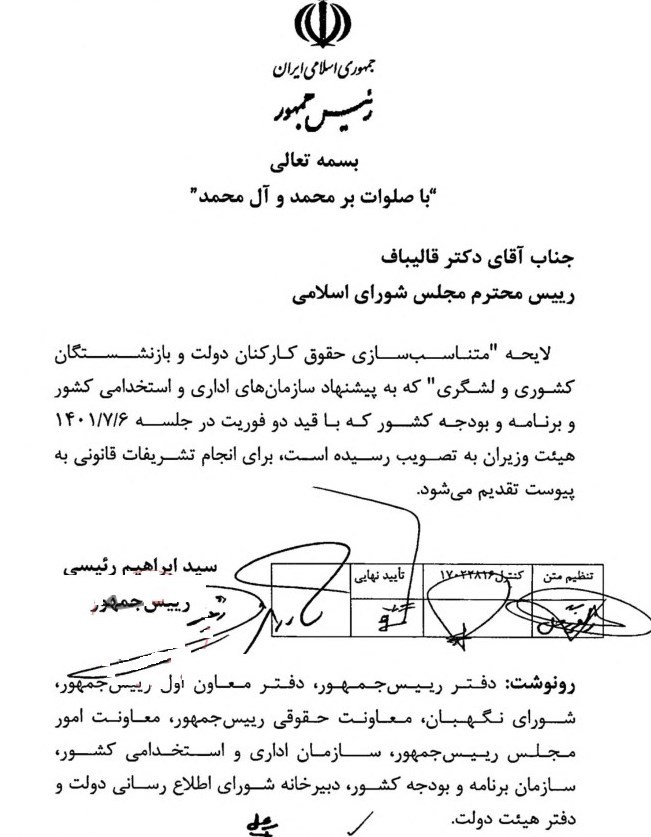 جمهوری اسلامی ایران
رئیس جمهور
بسمه تعالی
“با صلوات بر محمد و آل محمد”
جناب آقای دکتر قالیباف
رییس محترم مجلس شورای اسلامی
لایحه "متناسب‌سازی حقوق کارکنان دولت و بازنشستگان
کشوری و لشگری" که به پیشنهاد سازمان‌های اداری و استخدامی کشور
و برنامه و بودجه کشور که با قید دو فوریت در جلسه ۱۴۰۱/۷/۶
هیئت وزیران به تصویب رسیده است، برای انجام تشریفات قانونی به
پیوست تقدیم می‌شود.
سید ابراهیم رئیسی
رییس‌جمهور
تنظیم متن
کنترل ۱۷۰۲۴۸۱۶
تأیید نهایی
رونوشت: دفتر رییس‌جمهور، دفتر معاون اول رییس‌جمهور،
شورای نگهبان، معاونت حقوقی رییس‌جمهور، معاونت امور
مجلس رییس‌جمهور، سازمان اداری و استخدامی کشور،
سازمان برنامه و بودجه کشور، دبیرخانه شورای اطلاع رسانی دولت و
دفتر هیئت دولت.